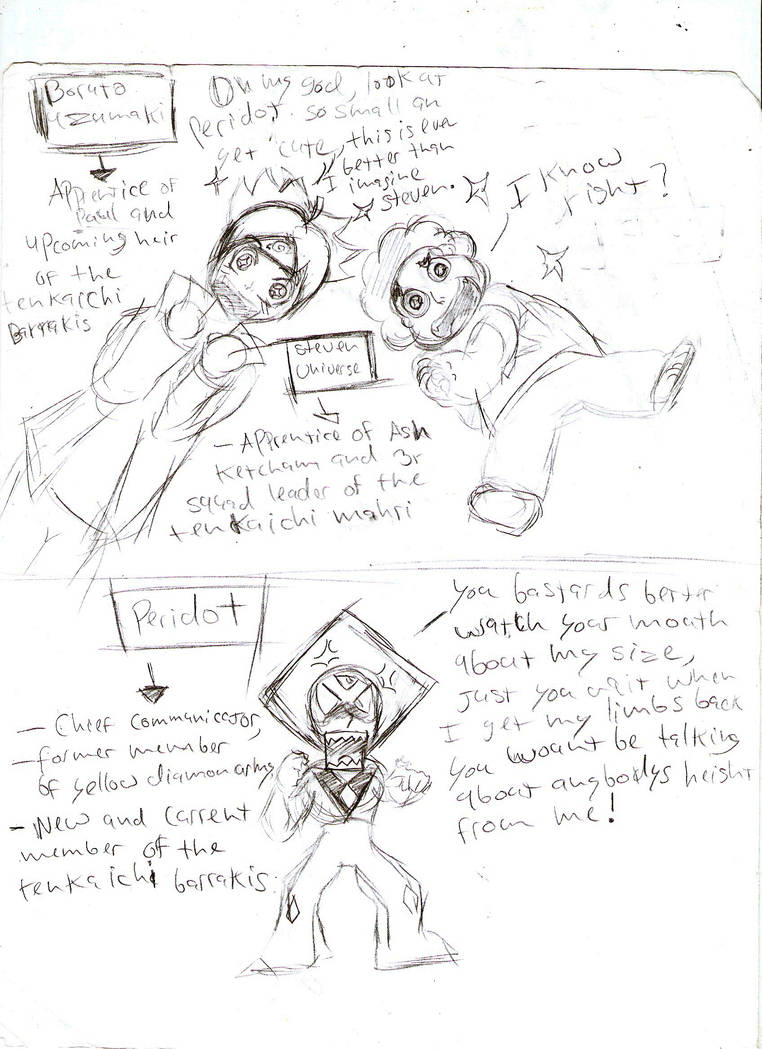 Boruto
Uzumaki
Oh my god, look at
Peridot. so small an
yet cute, this is even
better than
I imagine
Steven.
I know
right?
Apprentice of
Paul and
upcoming heir
of the
tenkaichi
Barrakis
Steven
Universe
- Apprentice of Ash
Ketcham and 3r
squad leader of the
tenkaichi mahri
Peridot
- Chief Communicator,
- former member
of yellow diamon army
- New and Current
member of the
tenkaichi barrakis.
You bastards better
watch your mouth
about my size,
just you wait when
I get my limbs back
you woant be talking
about anybodys height
from me!